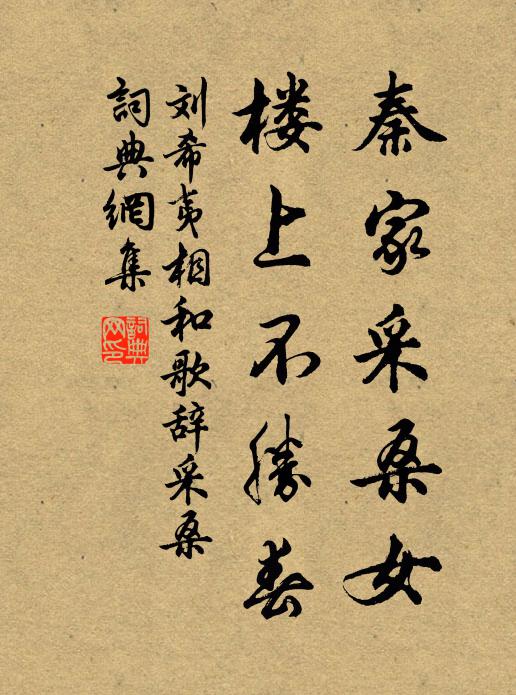 秦家采桑女
楼上不勝春
刘希夷相和歌辞采桑
詞典網集
詞典
网印